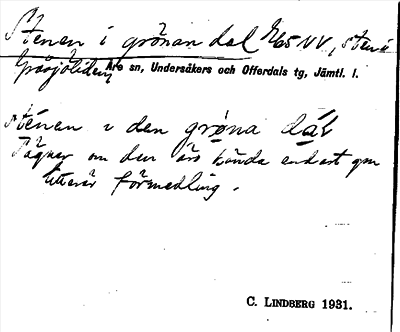 Stenen i grönan dal 265 NV, sten i
Gråsjöliden
Åre sn, Undersåkers och Offerdals tg, Jämtl. l.
stenen i den gröna dal
Sägner om den äro kända endast gm
litterär förmedling.
C. LINDBERG 1931.